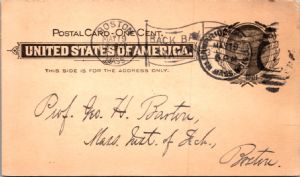 POSTAL CARD - ONE CENT.
UNITED STATES OF AMERICA.
THIS SIDE IS FOR THE ADDRESS ONLY.
BOSTON
MASS
BACK BA
Prof. Geo. H. Barton,
Mass. Inst. of Tech.,
Boston.